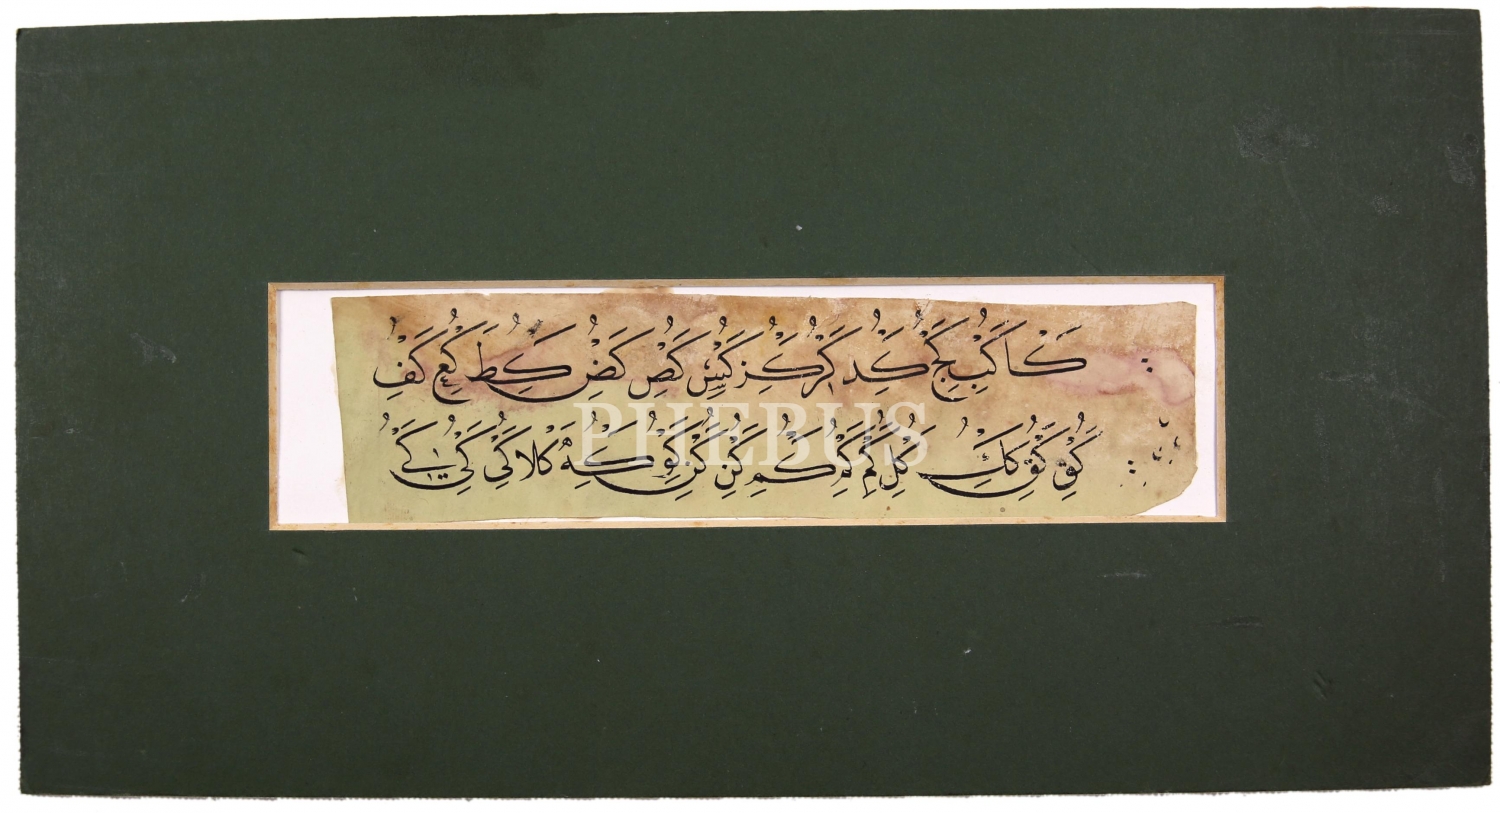 كَا كَبُ كِجُ كِدُ كَرُ كِزُ كَسُ كَصُ كَضُ كِطَ كُعُ كَفُ
كُقِ كَقُ كَكِ كُلِ كَمُ كَمُ كَمُ كُنِ كَنُ كَوُ كَهُ كَلَا كَيُ كَيُ كَيُ
PHEBUS